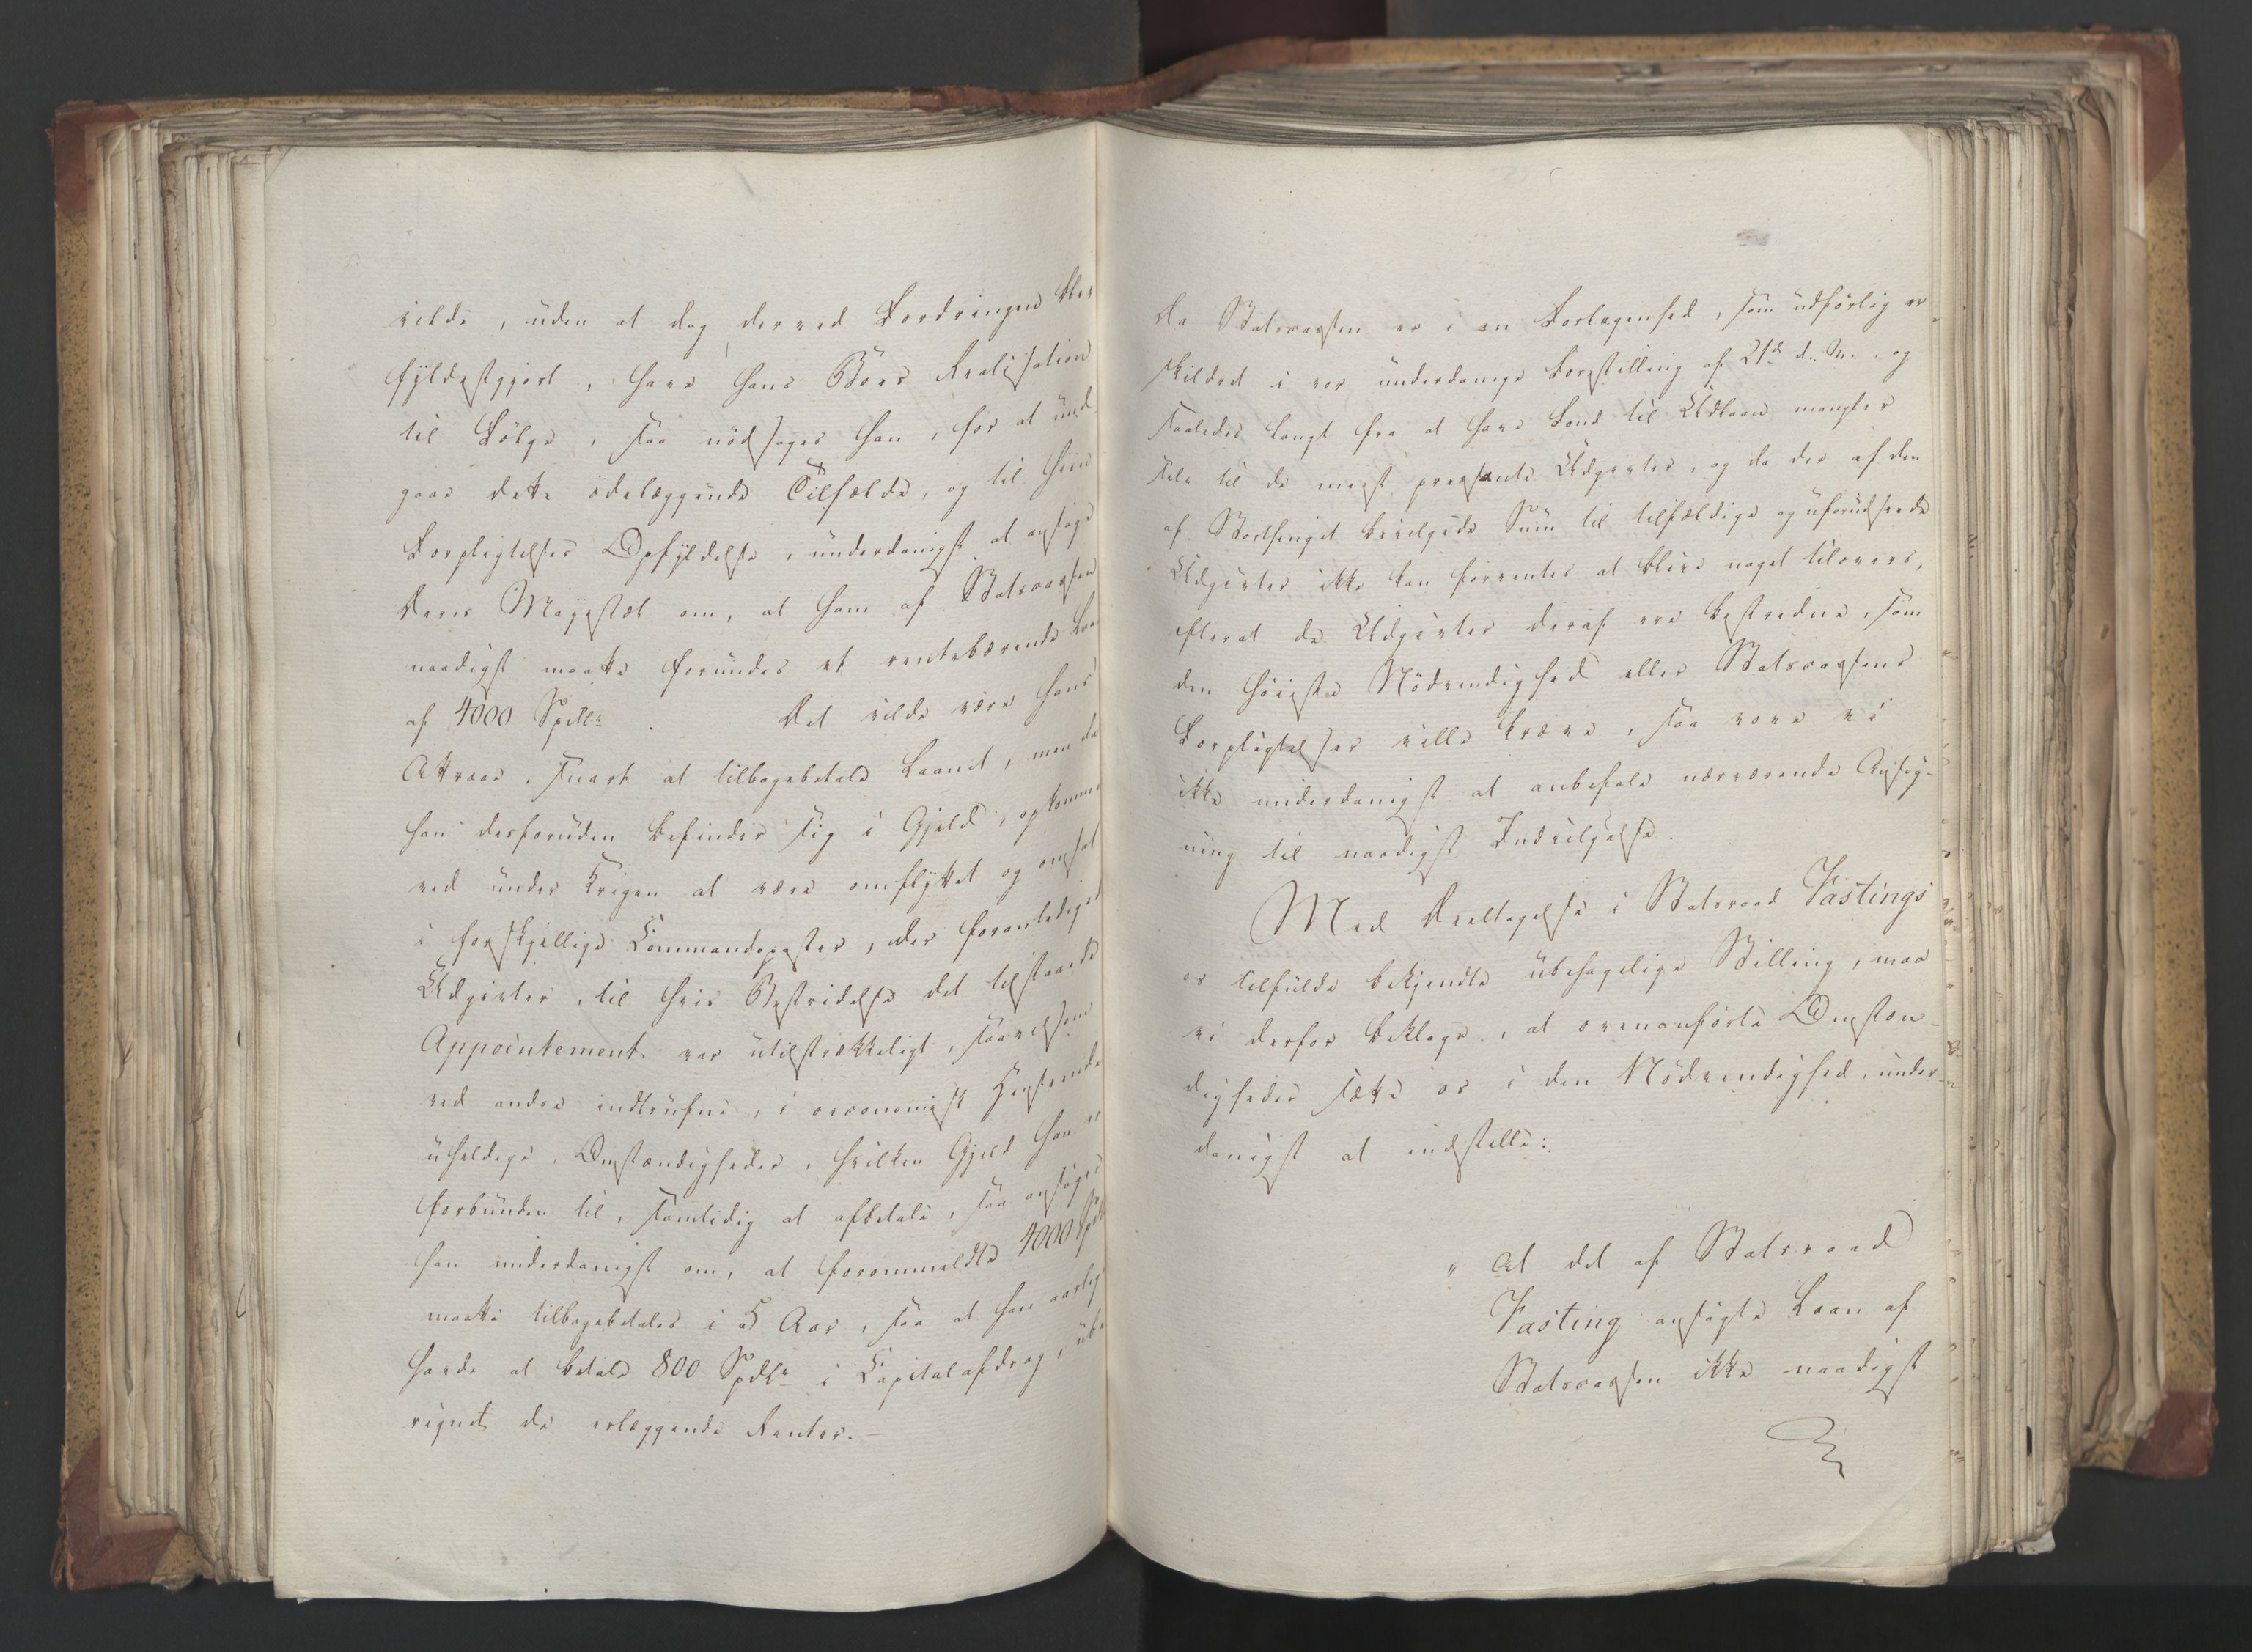 vilde, uden at dog derved Fordringen blev
fyldestgjort, have hans Boes Realisation
til Følge, saa nødsages han, for at und-
gaae dette ødelæggende Tilfælde, og til sine
Forpligtelsers Opfyldelse, underdanigst at ansøge
Deres Majestæt om, at ham af Statscassen
naadigst maatte forundes et rentebærende Laan
af 4000 Spdlr. Det vilde være hans
Attraae, snart at tilbagebetale Laanet, men da
han desforuden befinder sig i Gjeld, opkommen
ved under Krigen at være omflyttet og ansat
i forskjellige Commandoposter, der foranledigede
Udgivter, til hvis Bestridelse det tilstaaede
Appointement var utilstrækkeligt, saavelsom
ved andre indtrufne, i oeconomisk Henseende
uheldige, Omstændigheder, hvilken Gjeld han er
forbunden til, samtidig at afbetale, saa ansøger
han underdanigst om, at forommeldte 4000 Spdlr
maatte tilbagebetales i 5 Aar, saa at han aarlig
havde at betale 800 Spdlr i Capitalafdrag, ube-
regnet de erlæggende Renter. –
Da Statscassen er i en Forlegenhed, som udførlig er
skildret i vor underdanige Forestilling af 21de d. M., og
saaledes langt fra at have Fond til Udlaan mangler
selv til de meest pressante Udgivter, og da der af den
af Storthinget bevilgede Sum til tilfældige og uforudseede
Udgivter ikke kan forventes at blive noget tilovers,
efterat de Udgivter deraf ere bestredne, som
den høieste Nødvendighed eller Statscassens
Forpligtelser ville kræve, saa vove vi
ikke underdanigst at anbefale nærværende Ansøg-
ning til naadigst Indvilgelse.
Med Deeltagelse i Statsraad Fastings
os tilfulde bekjendte ubehagelige Stilling, maa
vi derfor beklage, at ovenanførte Omstæn-
digheder sætte os i den Nødvendighed, under-
danigst at indstille:
„ At det af Statsraad
Fasting ansøgte Laan af
Statscassen ikke naadigst